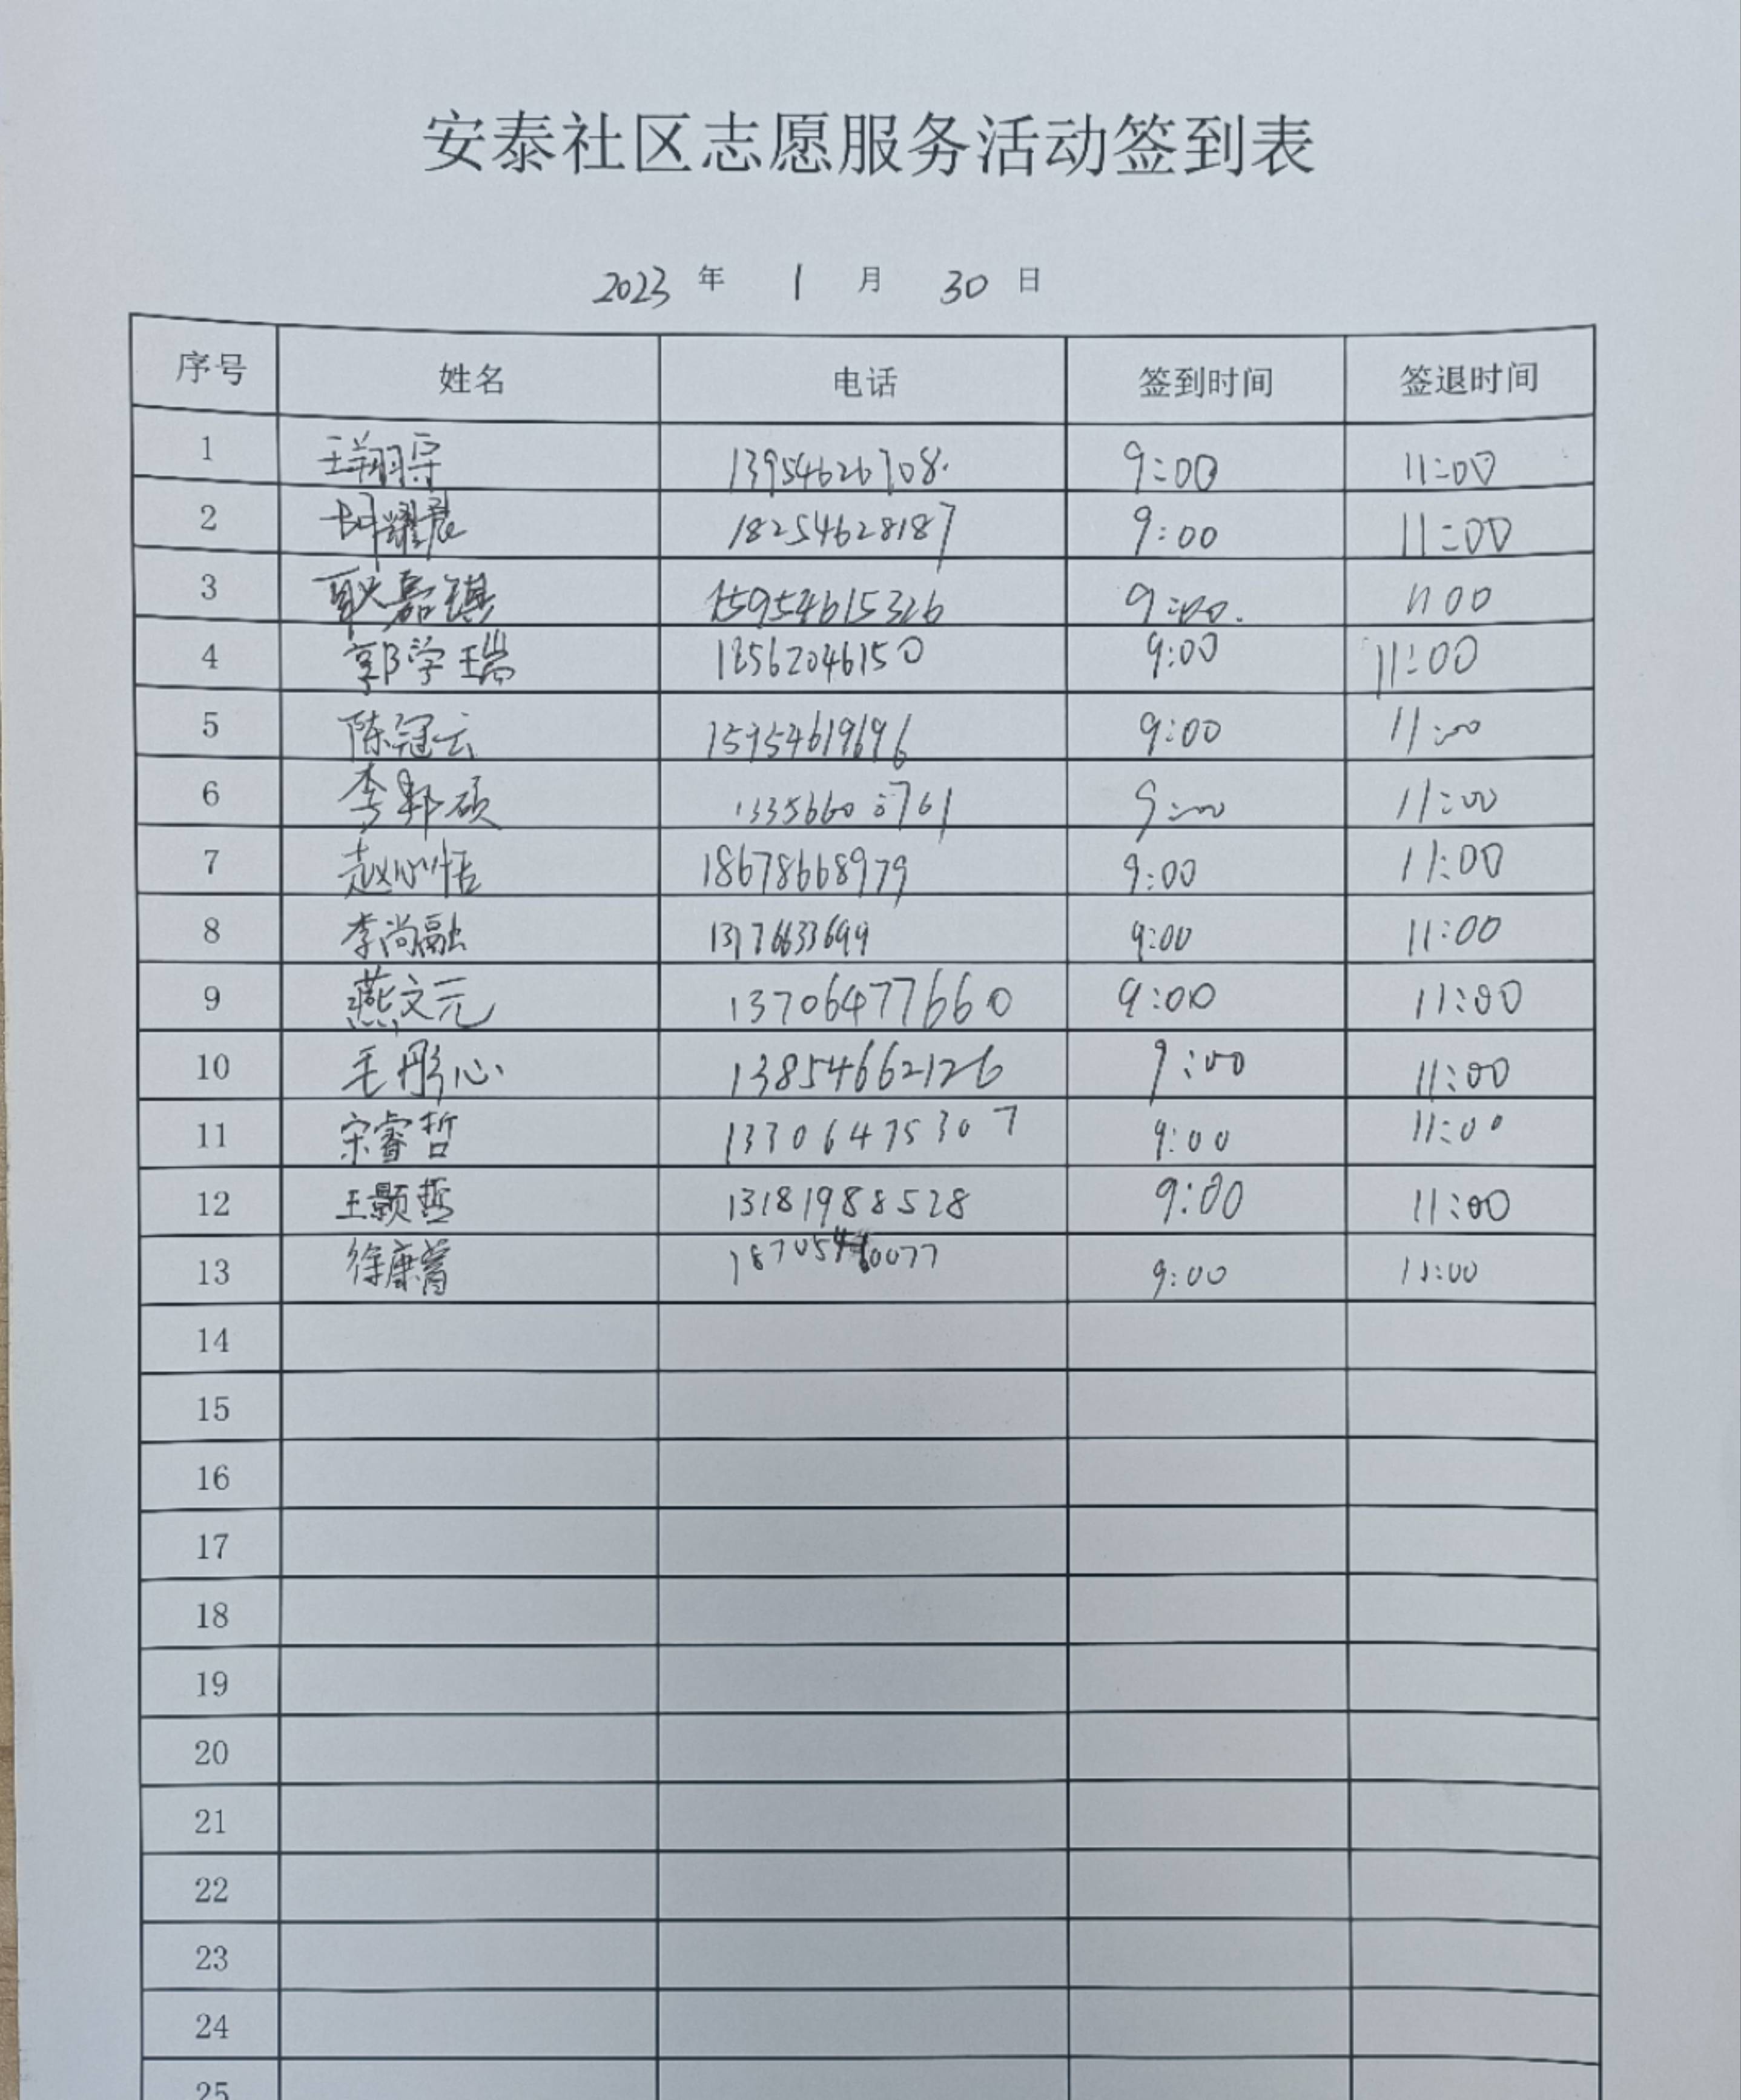 安泰社区志愿服务活动签到表
2023 年 1 月 30 日
序号 姓名 电话 签到时间 签退时间
1 王翔宇 13954626708. 9:00 11:00
2 耀晨 18254628187 9:00 11:00
3 耿嘉琪 15954615326 9:00. 11 00
4 郭学瑞 18562046150 9:00 11:00
5 陈冠云 15954619696 9:00 11:00
6 李邦硕 9:00 11:00
7 赵心恬 18678668979 9:00 11:00
8 李尚融 9:00 11:00
9 燕文元 13706477660 9:00 11:00
10 毛彤心 13854662126 9:00 11:00
11 宋睿哲 13306475307 9:00 11:00
12 王颢哲 13181988528 9:00 11:00
13 徐康 9:00 11:00
14
15
16
17
18
19
20
21
22
23
24
25